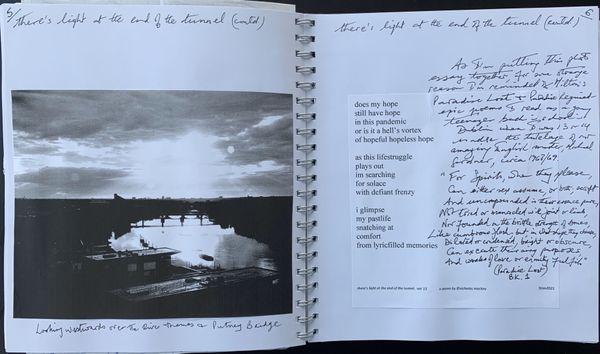 5/ there's light at the end of the tunnel (contd)
Looking westwards over the River Thames & Putney Bridge
there's light at the end of the tunnel (contd) 6
does my hope
still have hope
in this pandemic
or is it a hell's vortex
of hopeful hopeless hope
as this lifestruggle
plays out
im searching
for solace
with defiant frenzy
i glimpse
my pastlife
snatching at
comfort
from lyricfilled memories
there's light at the end of the tunnel, ver 11 a poem by ©nicholas mackey
As I'm putting this photo
essay together, for some strange
reason I'm reminded of Milton's
Paradise Lost & Paradise Regained
epic poems I read as a young
teenager back @ school in
Dublin when I was 13 or 14
under the tutelage of our
amazing English master, Michael
Gardner, circa 1968/69.
"For Spirits, when they please,
Can either sex assume, or both; so soft
And uncompounded is their essence pure,
Not tried or manacled with joint or limb,
Nor founded on the brittle strength of bones,
Like cumbrous flesh; but in what shape they choose,
Dilated or condensed, bright or obscure,
Can execute their airy purposes
And works of love or enmity fulfil"
(Paradise Lost)
BK. 1